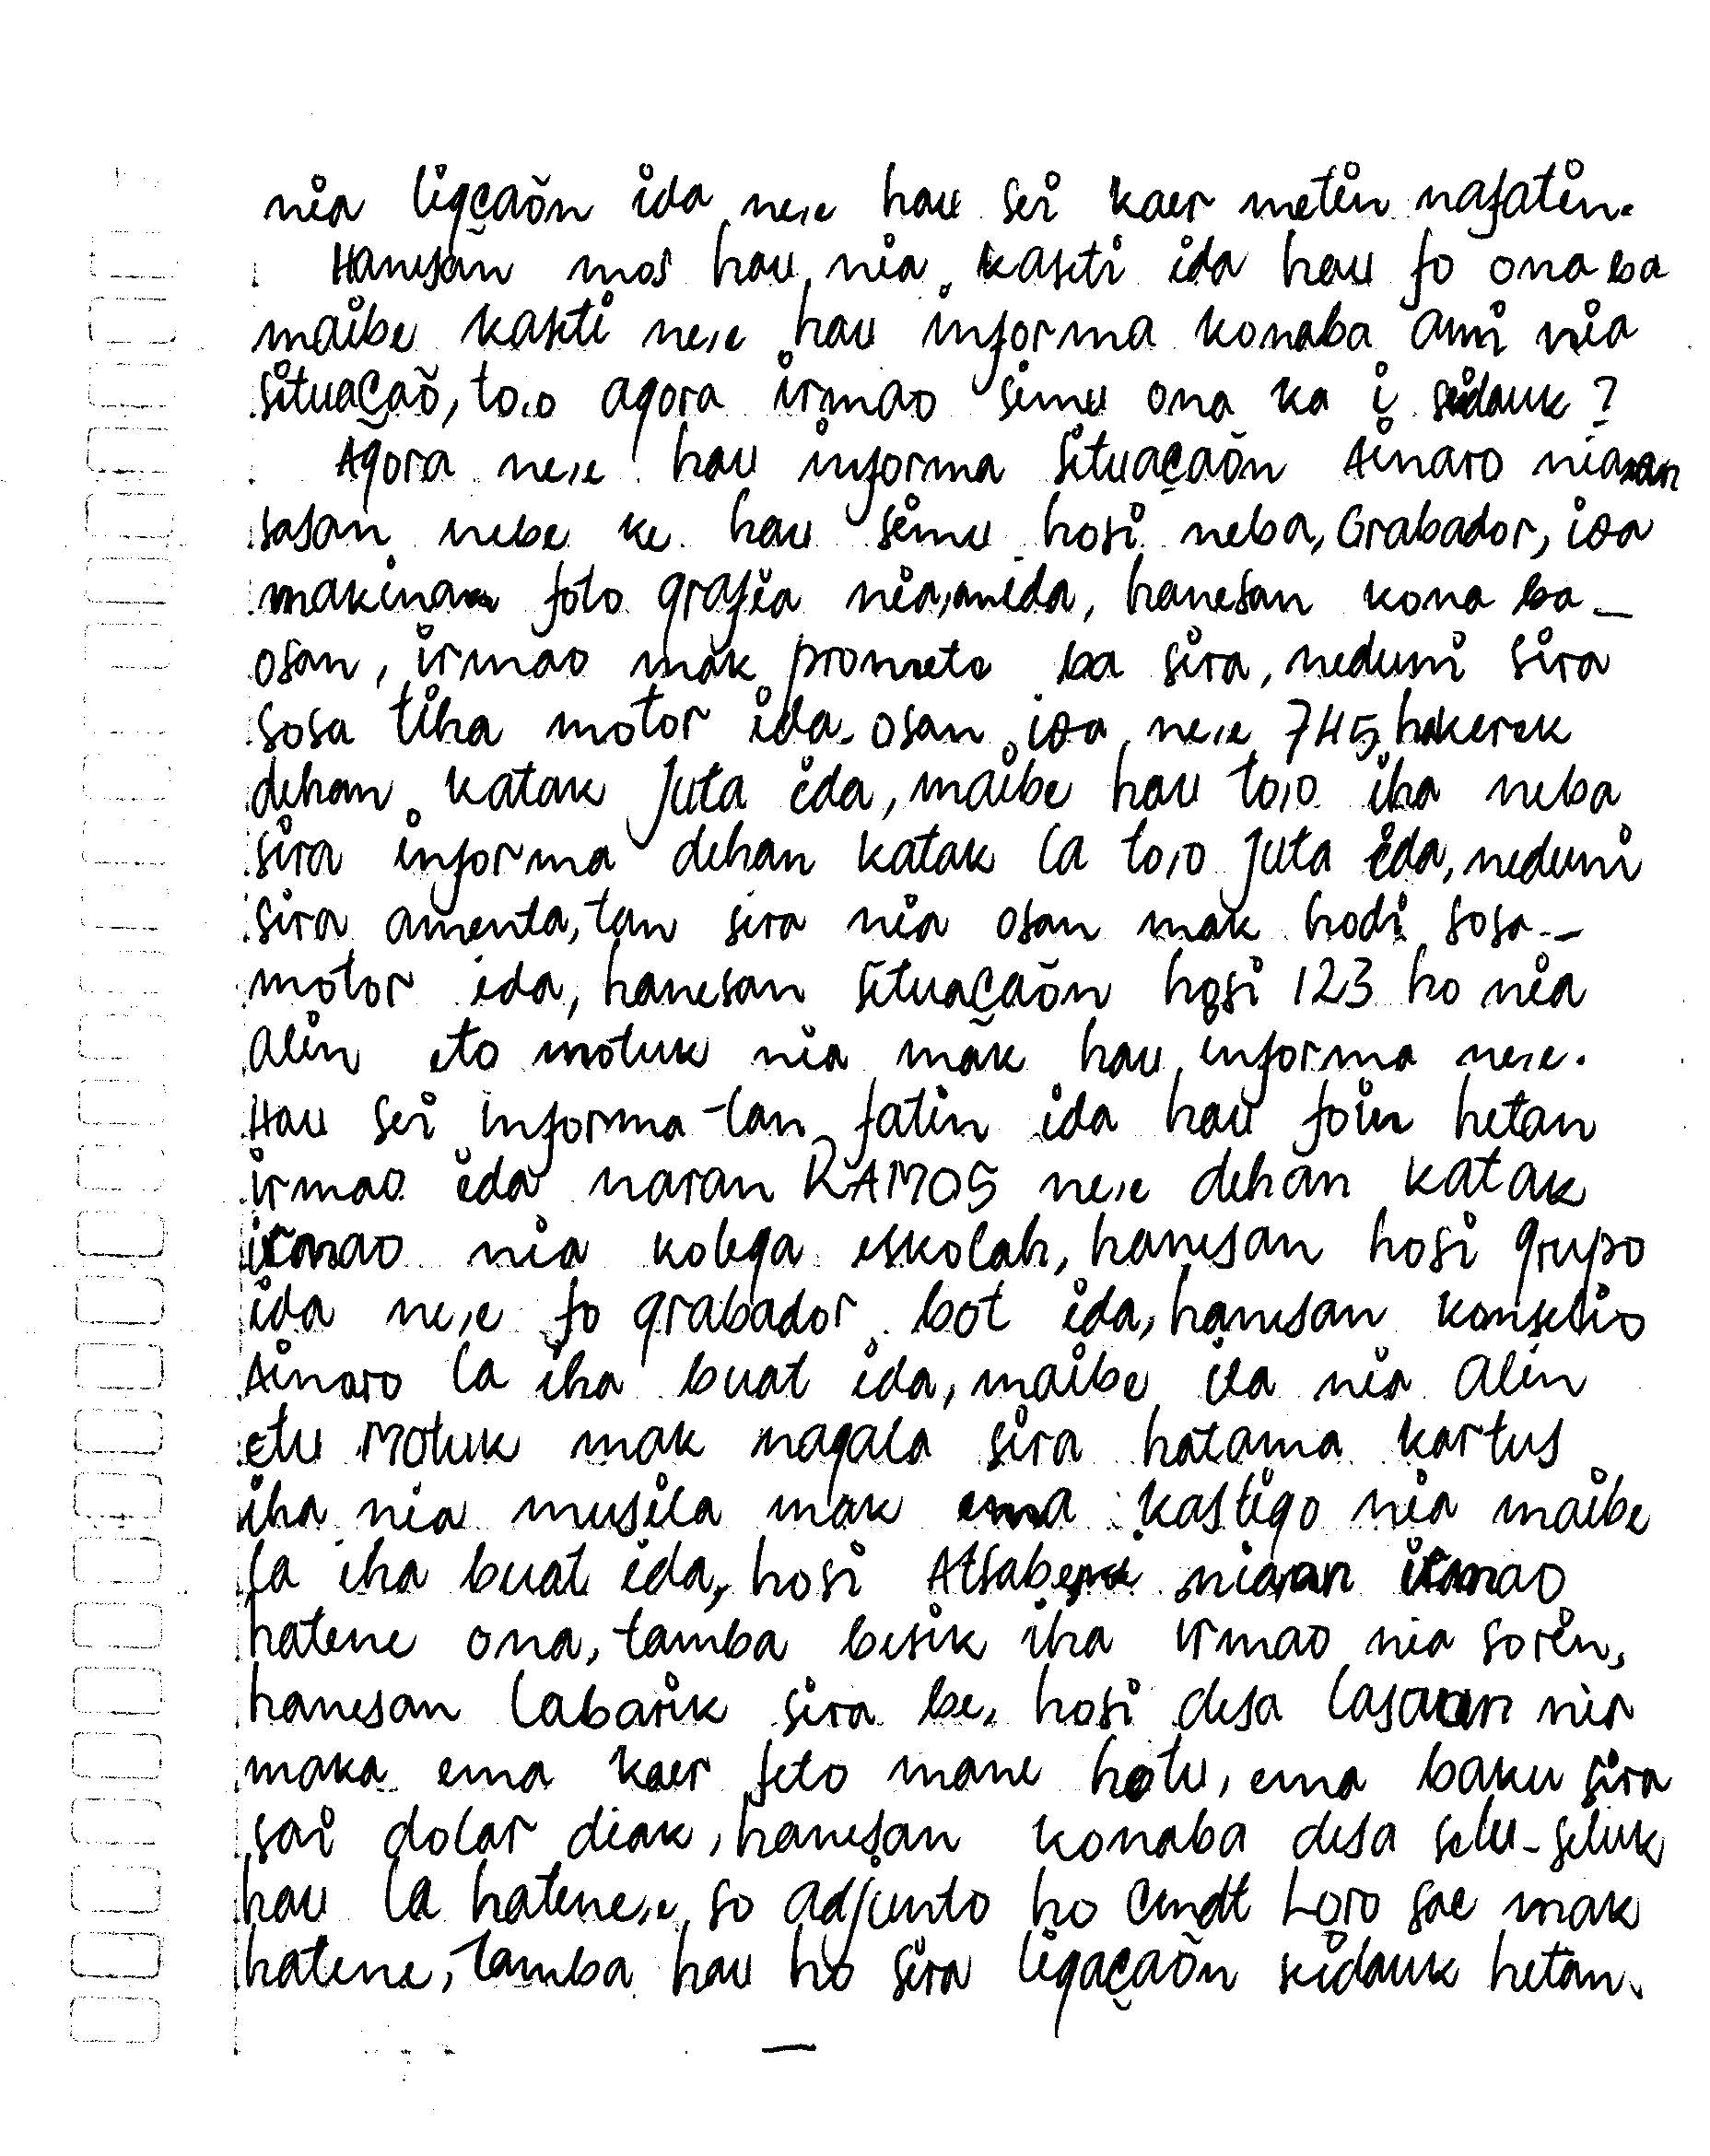 nia ligcaõn ida ne,e hau sei kaer metin nafatin.
Hanesan mos hau nia kaseti ida hau fo ona ba
maibe kaseti ne,e hau informa konaba ami nia
situaçaõ, to,o agora irmao simu ona ka i seidauk?
Agora ne,e hau informa situaçaõn Ainaro nian
sasan nebe ke hau simu hosi neba, Grabador, ida
makina foto grafia nia, hanesan kona ba
osan, irmao mak promete ba sira, neduni sira
sosa tiha motor ida. osan ne,e 745 hakerek
dehan katak Juta ida, maibe hau to,o iha neba
sira informa dehan katak la to,o Juta ida, neduni
sira amenta, tan sira nia osan mak hodi sosa
motor ida, hanesan situaçaõn hosi 123 ho nia
alin eto motuk nia mak hau informa ne,e.
Hau sei informa tan fatin ida hau foin hetan
irmao ida naran RAMOS ne,e dehan katak
irmao nia kolega eskolah, hanesan hosi grupo
ida ne,e fo grabador bot ida, hanesan konselio
Ainaro la iha buat ida, maibe ita nia alin
etu Motuk mak magala sira hatama kartus
iha nia musila mak ema kastigo nia maibe
la iha buat ida, hosi Atsabe nian irmao
hatene ona, tamba besik iha irmao nia sorin,
hanesan labarik sira be, hosi desa Lasaun nia
maka ema kaer feto mane hotu, ema baku sira
sai dolar diak, hanesan konaba desa selu-seluk
hau la hatene,e so adjunto ho Cmdt Loro sae mak
hatene, tamba hau ho sira ligaçaõn seidauk hetan.